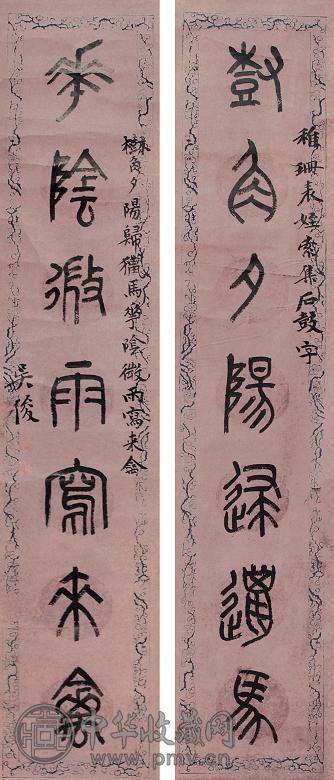 尌角夕陽歸邋馬
稚珊表姪集石鼓字
華陰微雨寫來禽
樹角夕陽歸獵馬華陰微雨寫來禽
吳俊
中华收藏网
www.pmv.cn